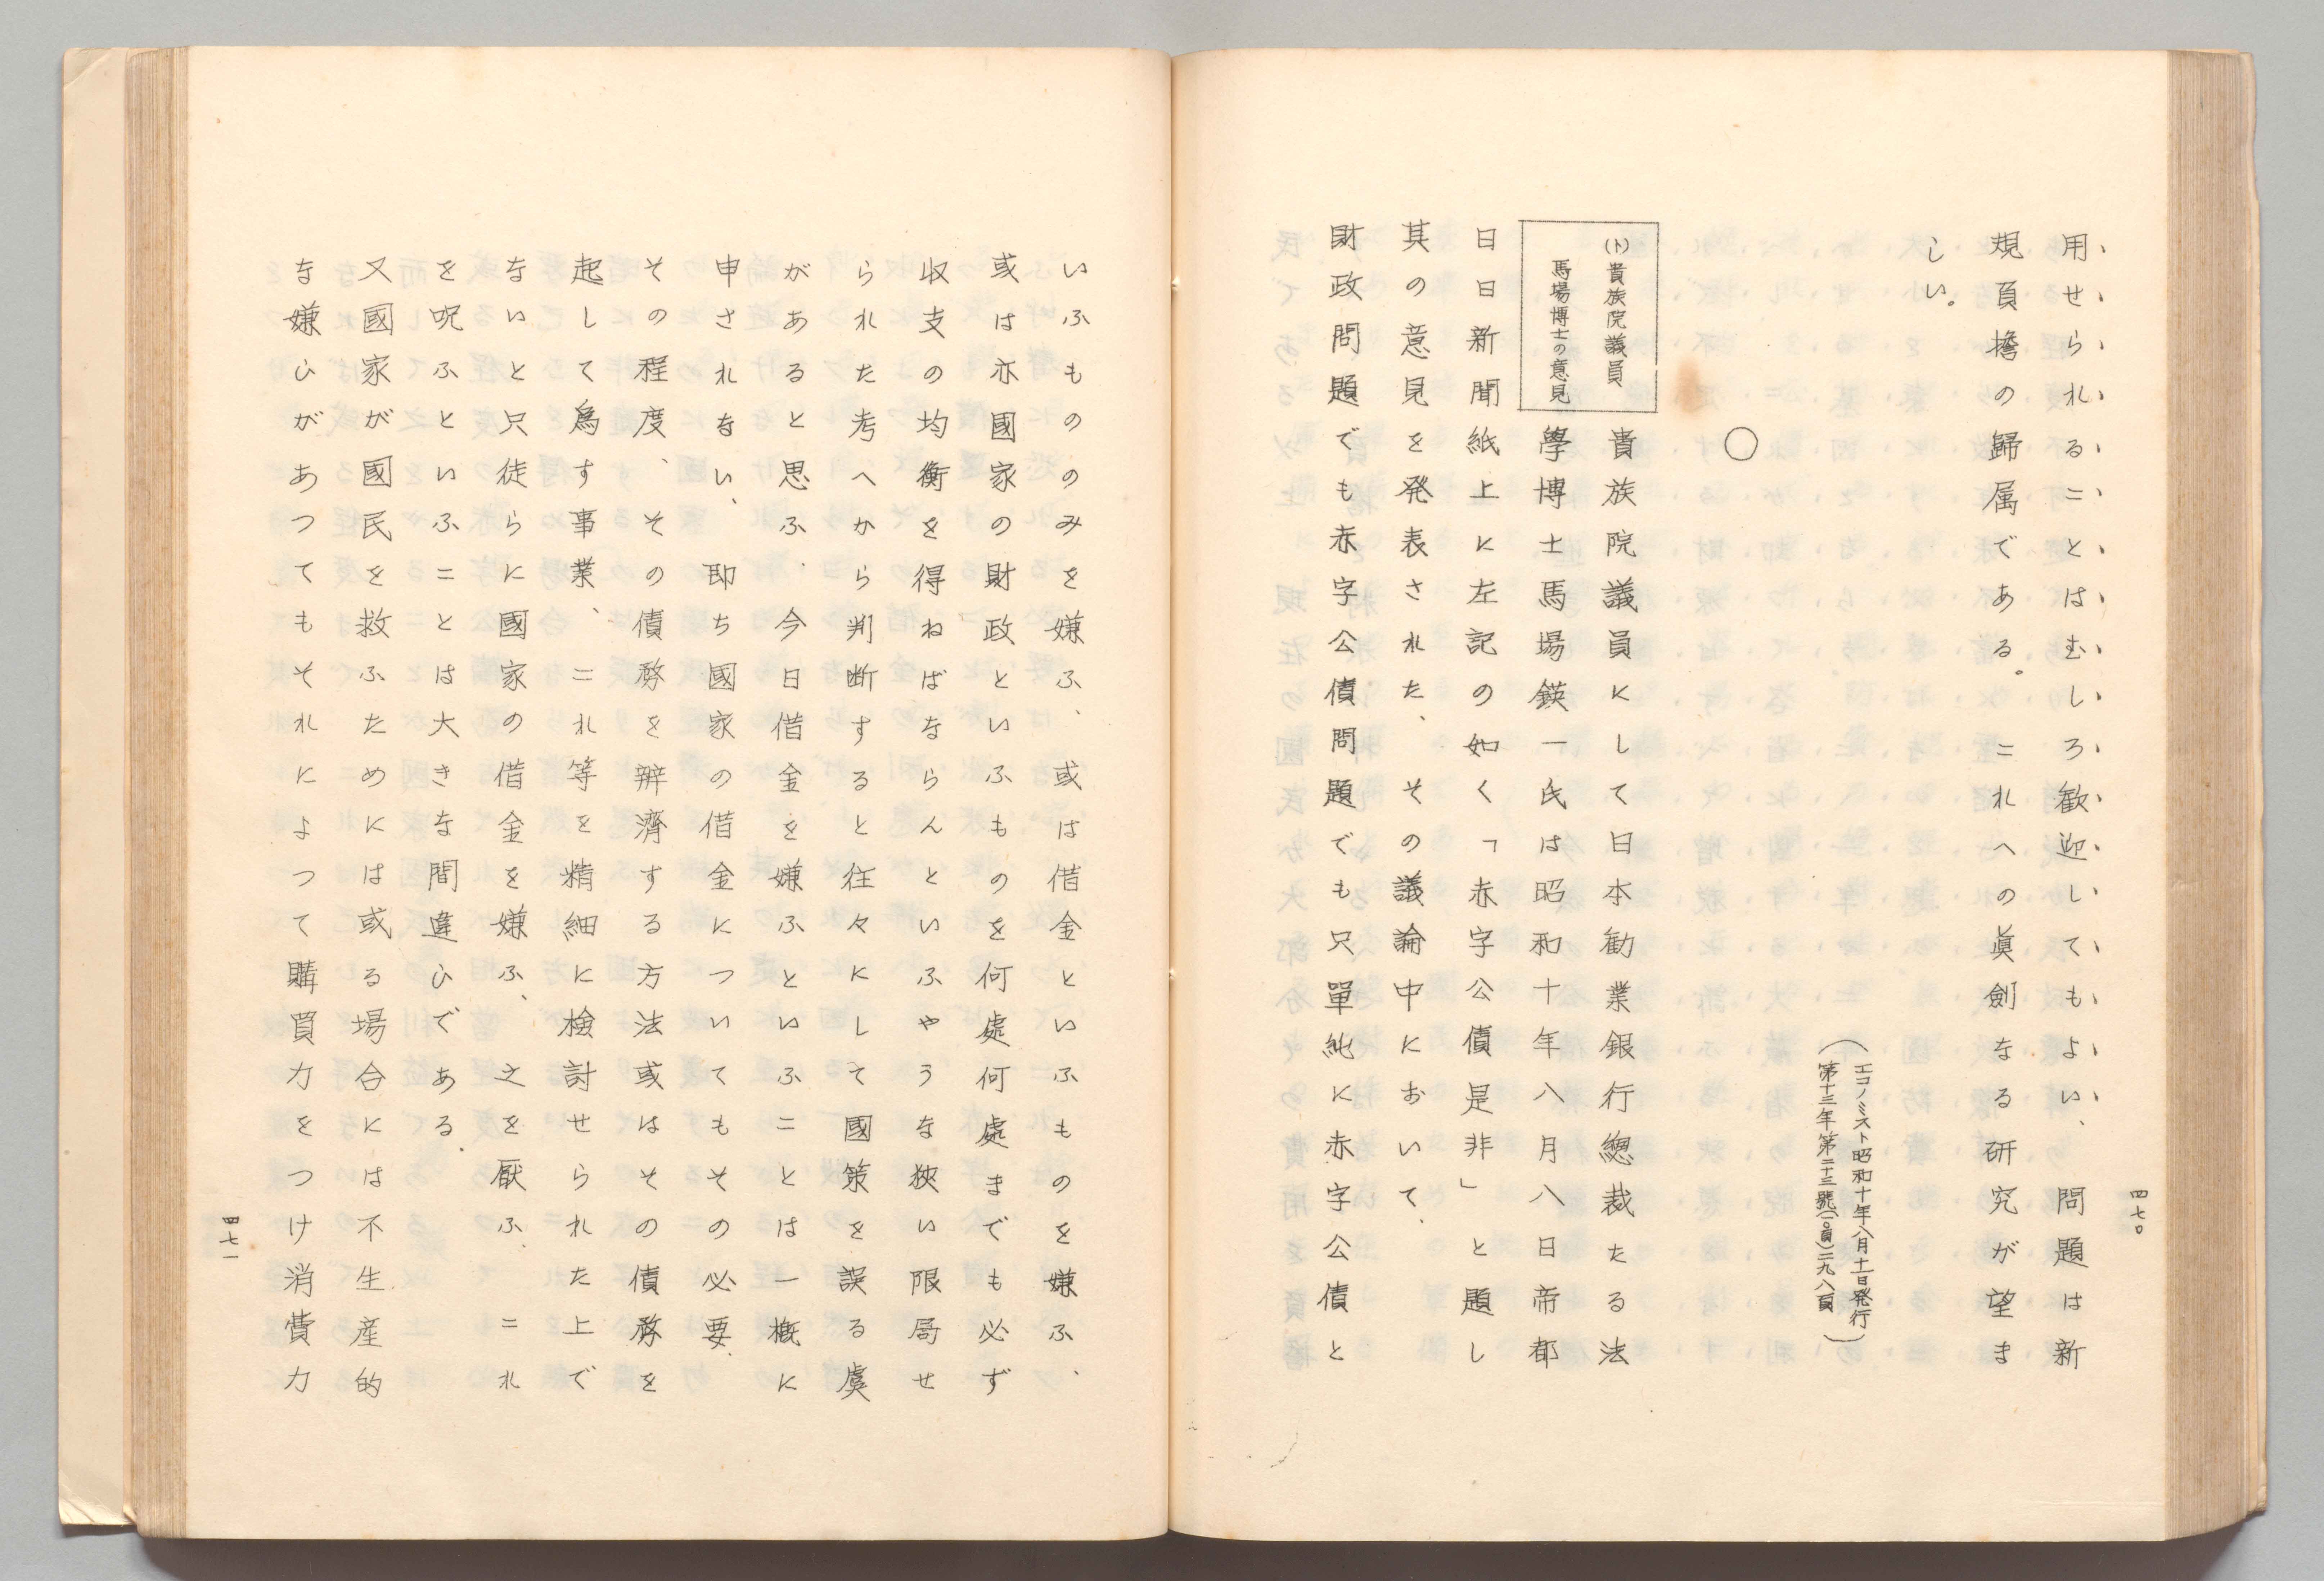 四七〇
用せられることはむしろ歓迎してもよい、問題は新
規負擔の歸属である。これへの眞劍なる研究が望ま
しい。
(エコノミスト昭和十年八月十一日発行
第十三年第二十三號(一〇頁)二九八頁)
○
(ト)貴族院議員
馬場博士の意見
貴族院議員にして日本勧業銀行總裁たる法
學博士馬場鍈一氏は昭和十年八月八日帝都
日日新聞紙上に左記の如く「赤字公債是非」と題し
其の意見を発表された、その議論中において、
財政問題でも赤字公債問題でも只單純に赤字公債と
いふもののみを嫌ふ、或は借金といふものを嫌ふ、
或は亦國家の財政といふものを何處何處までも必ず
収支の均衡を得ねばならんといふやうな狹い限局せ
られた考へから判断すると往々にして國策を誤る虞
があると思ふ、今日借金を嫌ふといふことは一概に
申されない、即ち國家の借金についてもその必要、
その程度、その債務を辨濟する方法或はその債務を
起して爲す事業、これ等を精細に検討せられた上で
ないと只徒らに國家の借金を嫌ふ、之を厭ふ、これ
を呪ふといふことは大きな間違ひである、
又國家が國民を救ふためには或る場合には不生産的
な嫌ひがあつてもそれによつて購買力をつけ消費力
四七一